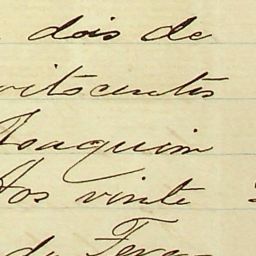 dois de
oitocentos
Joaquim
Aos vinte
de